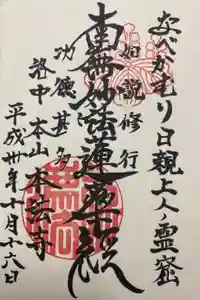 なべかむり日親上人ノ霊窟
如説修行
南無妙法蓮華経
功徳甚多
洛中 本山 本法寺
平成卅年十月十六日